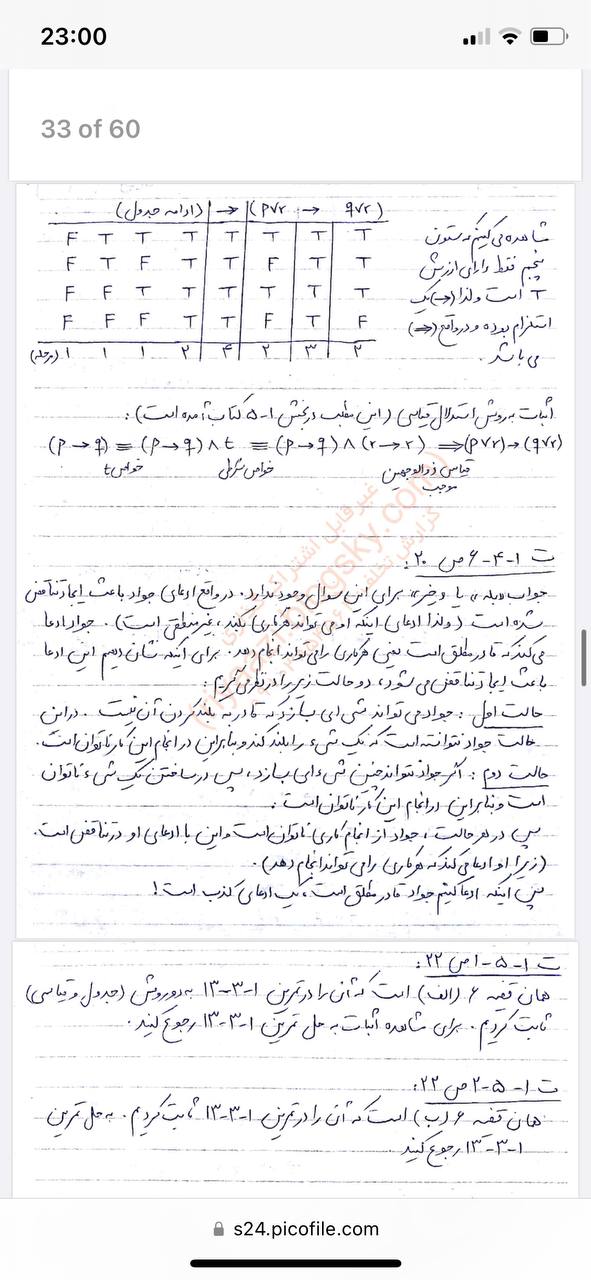 23:00
33 of 60
(ادامه جدول) → (p∨r → q∨r)
F T T T T T T T
F T F T T F T T
F F T T T T T T
F F F T T F T F
(مرحله) 1 1 1 2 4 2 3 2
مشاهده می کنیم که ستون
پنجم فقط دارای ارزش
T است ولذا (→) یک
استلزام بوده و در واقع (⇒)
می باشد.
اثبات به روش استدلال قیاسی (این مطلب در بخش ۱-۵ کتاب آمده است):
(p → q) ≡ (p → q) ∧ t ≡ (p → q) ∧ (r → r) ⟹ (p∨r) → (q∨r)
خواص t خواص شرطی قیاس ذوالوجهین
موجب
ت ۱-۴-۶ ص ۲۰:
جواب «بله» یا «خیر» برای این سوال وجود ندارد. در واقع ادعای جواد باعث ایجاد تناقض
شده است (ولذا ادعای اینکه او می تواند هرکاری بکند، غیرمنطقی است). جواد ادعا
می کند که قادر مطلق است یعنی هرکاری را می تواند انجام دهد. برای اینکه نشان دهیم این ادعا
باعث ایجاد تناقض می شود، دو حالت زیر را در نظر می گیریم:
حالت اول: جواد می تواند شی ای بسازد که قادر به بلند کردن آن نیست. در این
حالت جواد نتوانسته است که یک شیء را بلند کند و بنابراین در انجام این کار ناتوان است.
حالت دوم: اگر جواد نتواند چنین شیء ای بسازد، پس در ساختن یک شیء ناتوان
است و بنابراین در انجام این کار ناتوان است.
پس در هر حالت، جواد از انجام کاری ناتوان است و این با ادعای او در تناقض است.
(زیرا او ادعا می کند که هرکاری را می تواند انجام دهد).
پس اینکه ادعا کنیم جواد قادر مطلق است، یک ادعای کذب است!
ت ۱-۵-۱ ص ۲۲:
همان قضیه ۶ (الف) است که آن را در تمرین ۱-۳-۱۳ به دو روش (جدول و قیاسی)
ثابت کردیم. برای مشاهده اثبات به حل تمرین ۱-۳-۱۳ رجوع کنید.
ت ۱-۵-۲ ص ۲۲:
همان قضیه ۶ (ب) است که آن را در تمرین ۱-۳-۱۳ ثابت کردیم. به حل تمرین
۱-۳-۱۳ رجوع کنید
s24.picofile.com